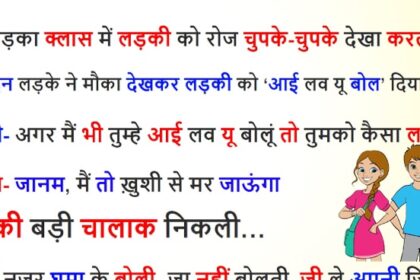 ड़का क्लास में लड़की को रोज चुपके-चुपके देखा करत
न लड़के ने मौका देखकर लड़की को ‘आई लव यू बोल’ दिया
- अगर मैं भी तुम्हे आई लव यू बोलूं तो तुमको कैसा ल
- जानम, मैं तो ख़ुशी से मर जाऊंगा
की बड़ी चालाक निकली...
नजर घुमा के बोली, जा नहीं बोलती, जी ले अपनी जि